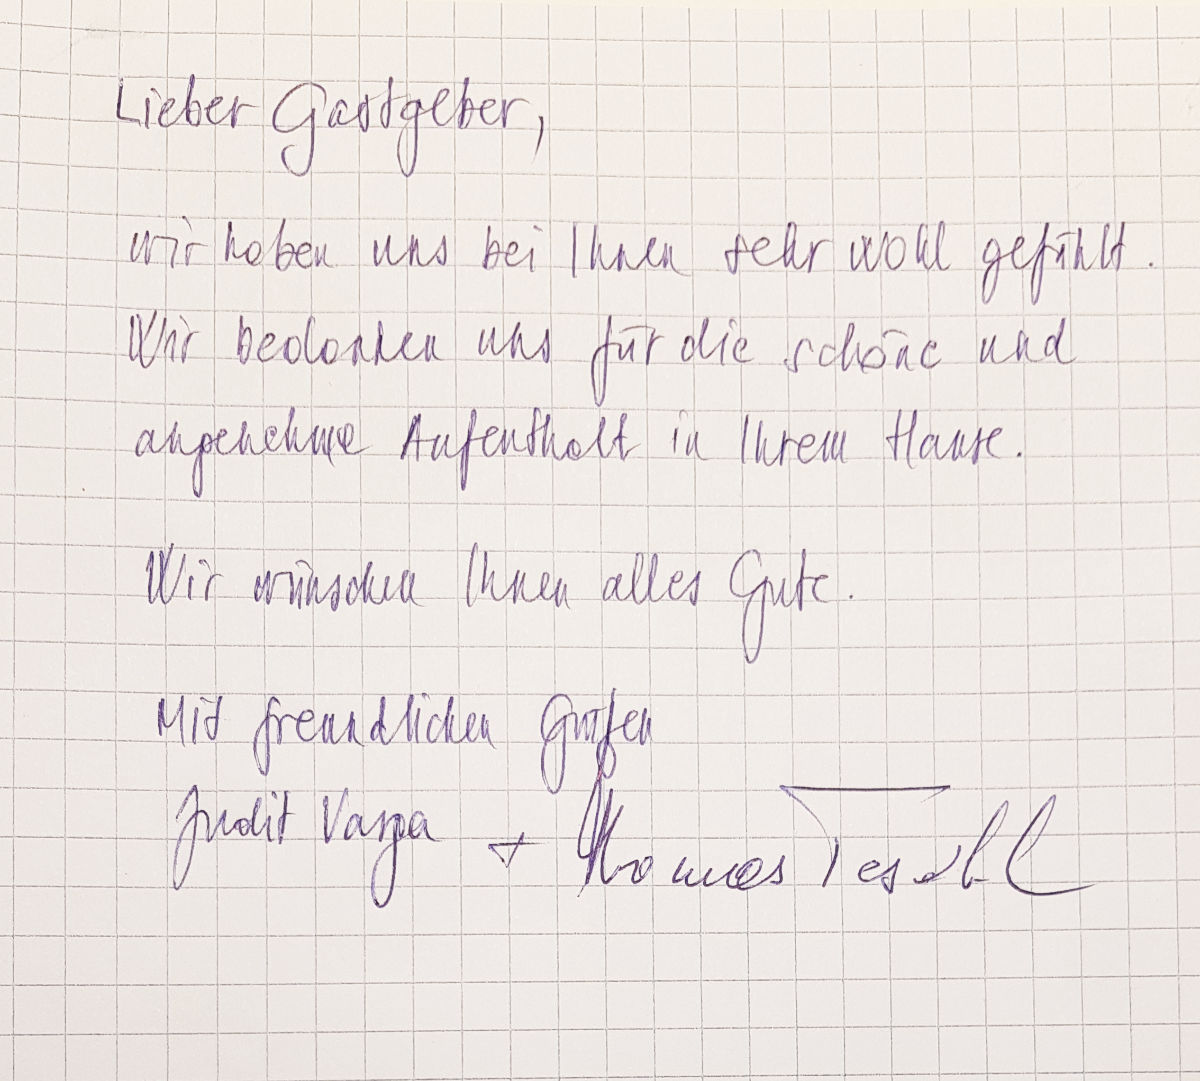 Lieber Gastgeber,
wir haben uns bei Ihnen sehr wohl gefühlt.
Wir bedanken uns für die schöne und
angenehme Aufenthalt in Ihrem Hause.
Wir wünschen Ihnen alles Gute.
Mit freundlichen Grüßen
Judit Varga + Thomas